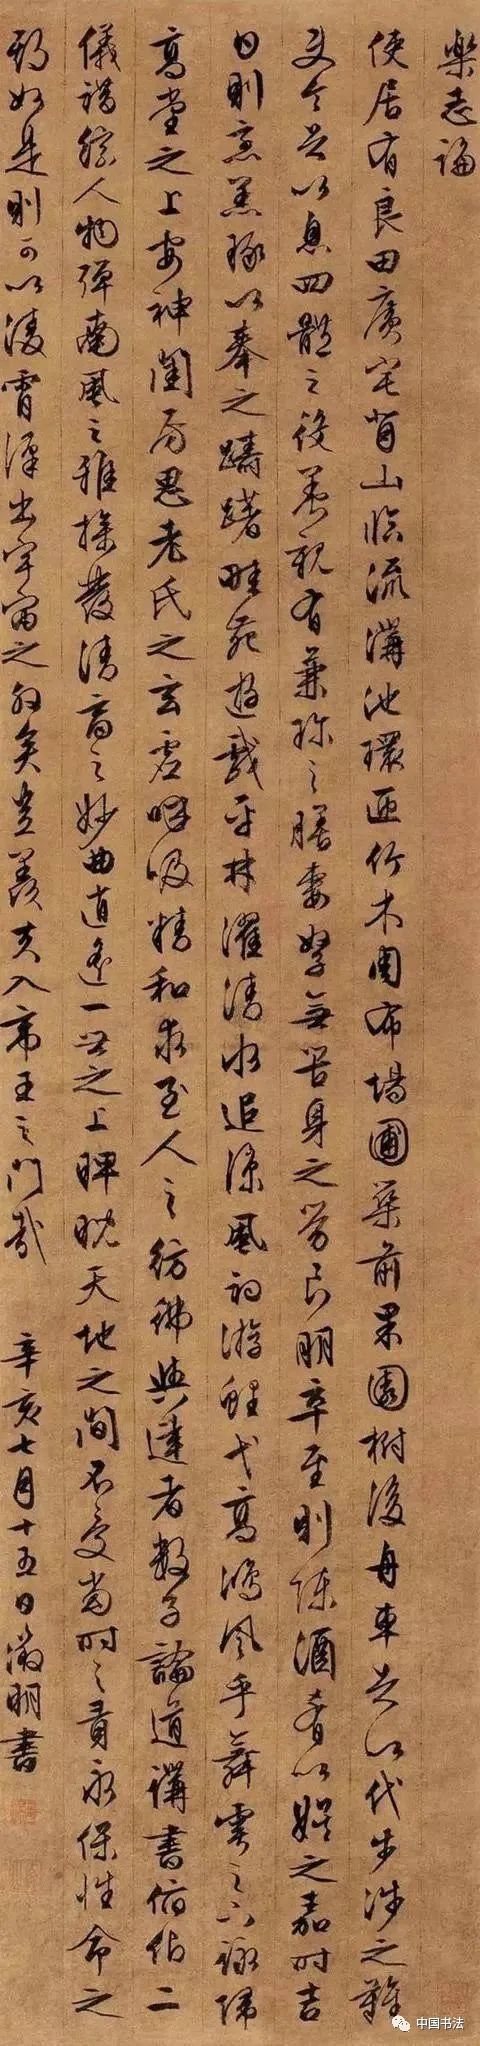 樂志論
使居有良田廣宅背山臨流溝池環匝竹木周布場圃築前果園樹後舟車足以代步涉之難
使令足以息四體之役養親有兼珍之膳妻孥無苦身之勞良朋萃至則陳酒肴以娛之嘉時吉
日則烹羔豚以奉之躊躇畦苑遊戲平林濯清水追涼風釣游鯉弋高鴻風乎舞雩之下詠歸
高堂之上安神閨房思老氏之玄虛呼吸精和求至人之彷彿與達者數子論道講書俯仰二
儀錯綜人物彈南風之雅操發清音之妙曲逍遙一世之上睥睨天地之間不受當時之責永保性命之
期如是則可以淩霄漢出宇宙之外矣豈羨夫入帝王之門哉 辛亥七月十五日徵明書
中国书法